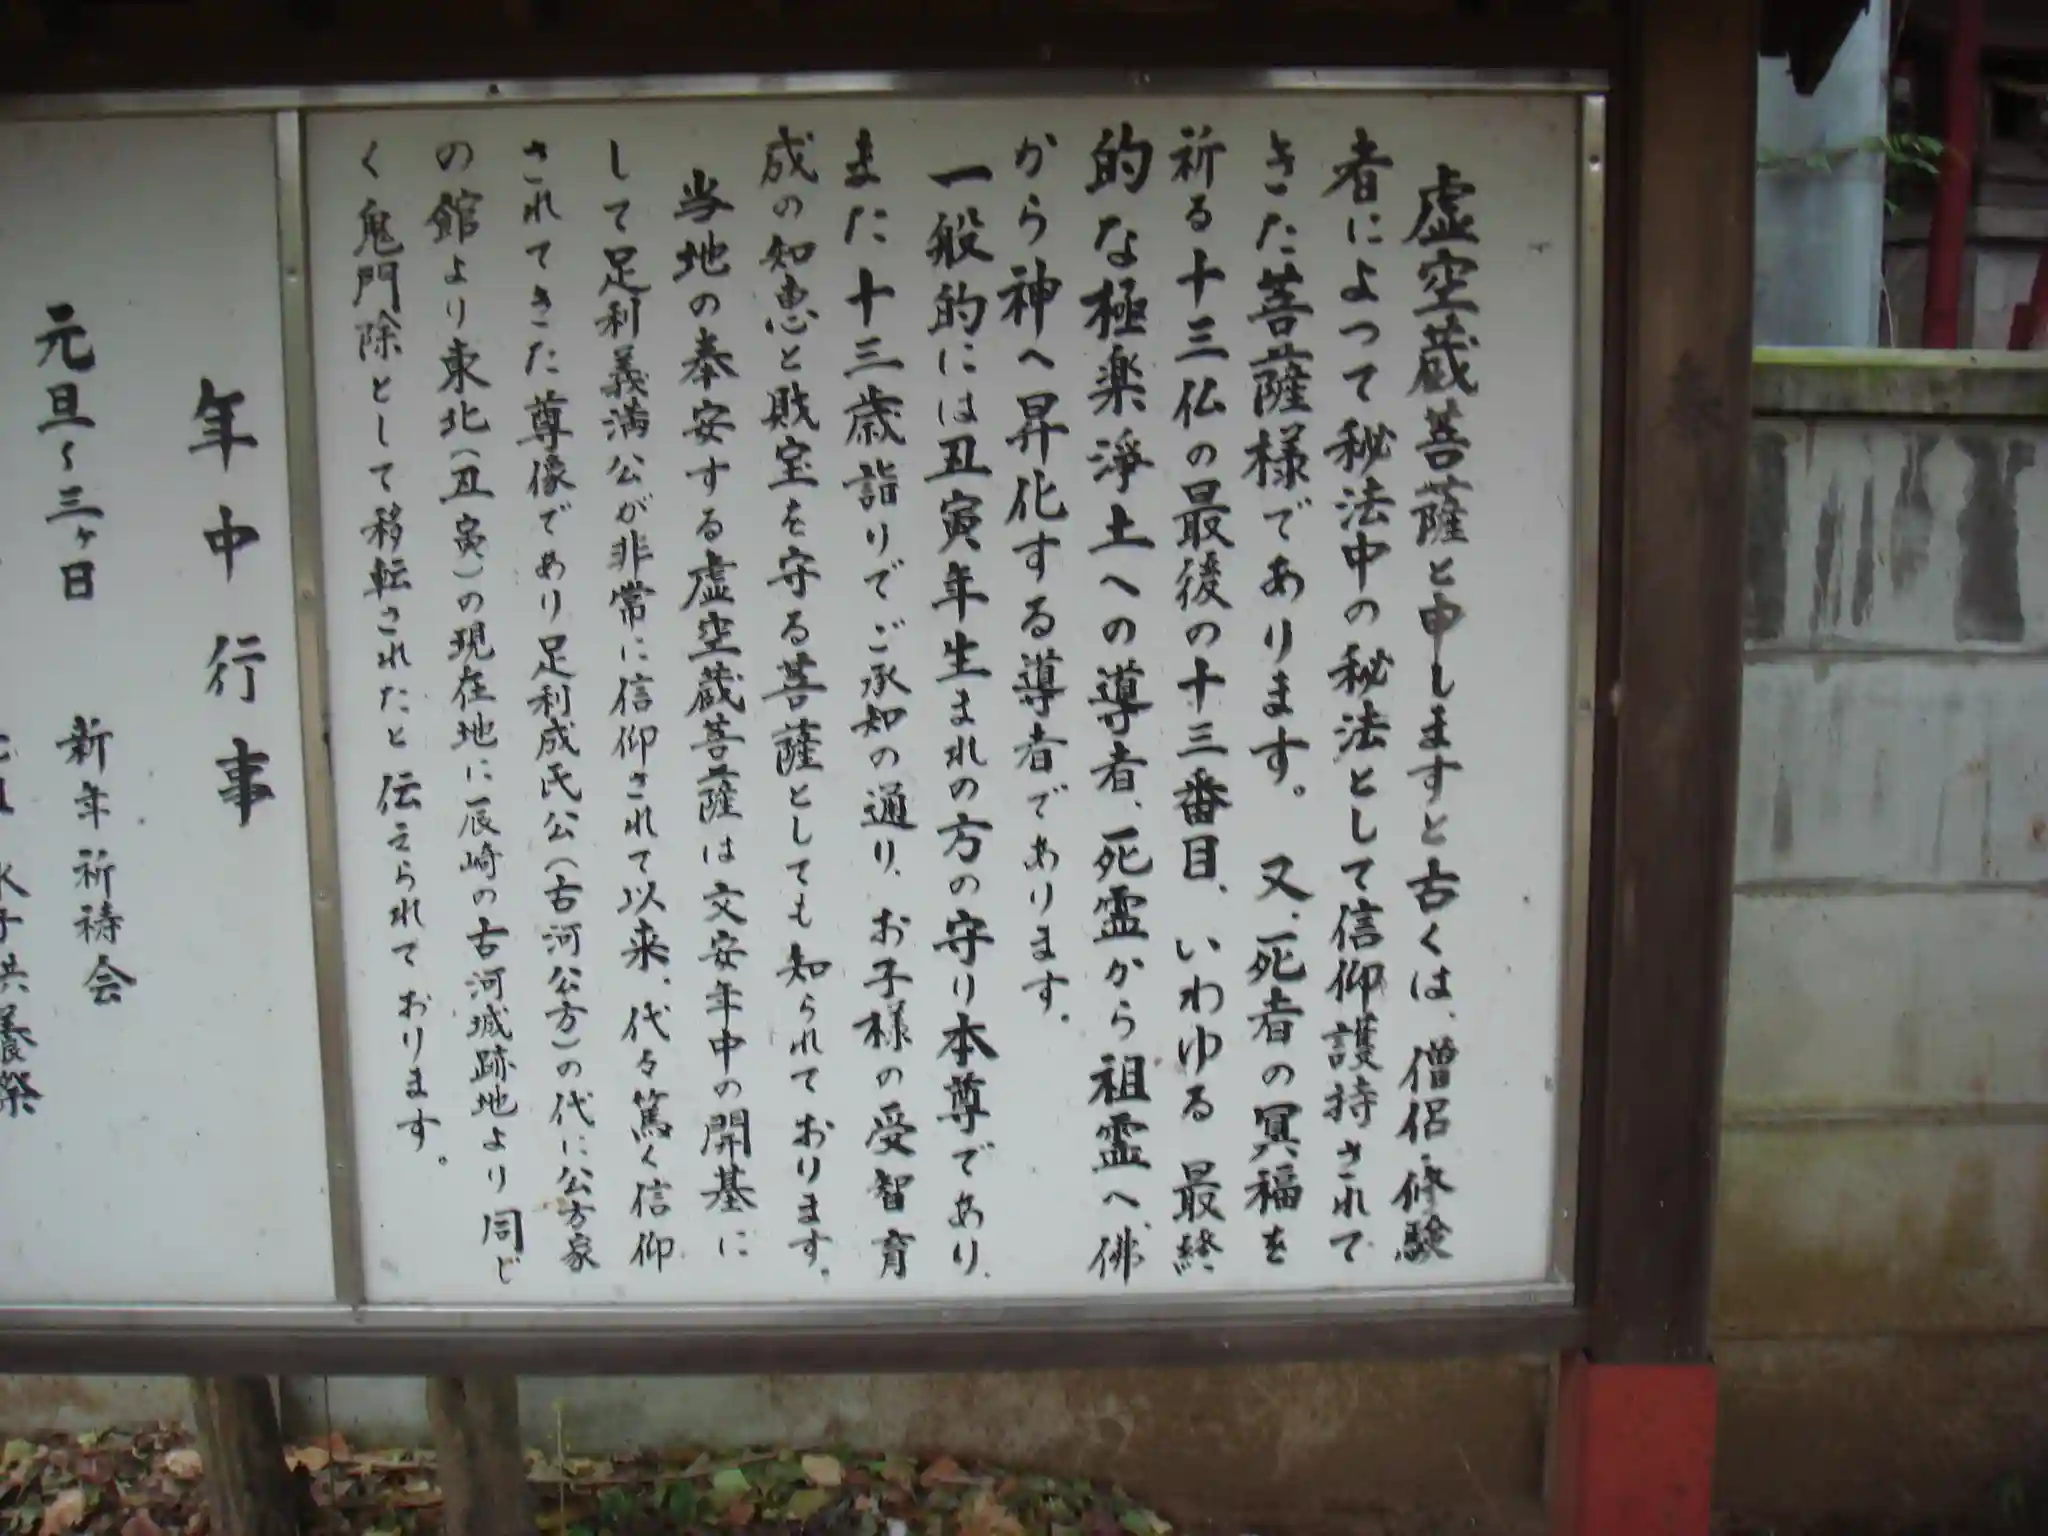 虚空蔵菩薩と申しますと古くは、僧侶・修験
者によって秘法中の秘法として信仰護持されて
きた菩薩様であります。又、死者の冥福を
祈る十三仏の最後の十三番目、いわゆる最終
的な極楽浄土への導者、死霊から祖霊へ、佛
から神へ昇化する導者であります。
一般的には丑寅年生まれの方の守り本尊であり、
また十三歳詣りでご承知の通り、お子様の受智育
成の知恵と財宝を守る菩薩としても知られております。
当地の奉安する虚空蔵菩薩は文安年中の開基に
して足利義満公が非常に信仰されて以来、代々篤く信仰
されてきた尊像であり足利成氏公(古河公方)の代に公方家
の館より東北(丑寅)の現在地に辰崎の古河城跡地より同じ
く鬼門除として移転されたと伝えられております。
年中行事
元旦〜三ヶ日 新年祈祷会
水子供養祭